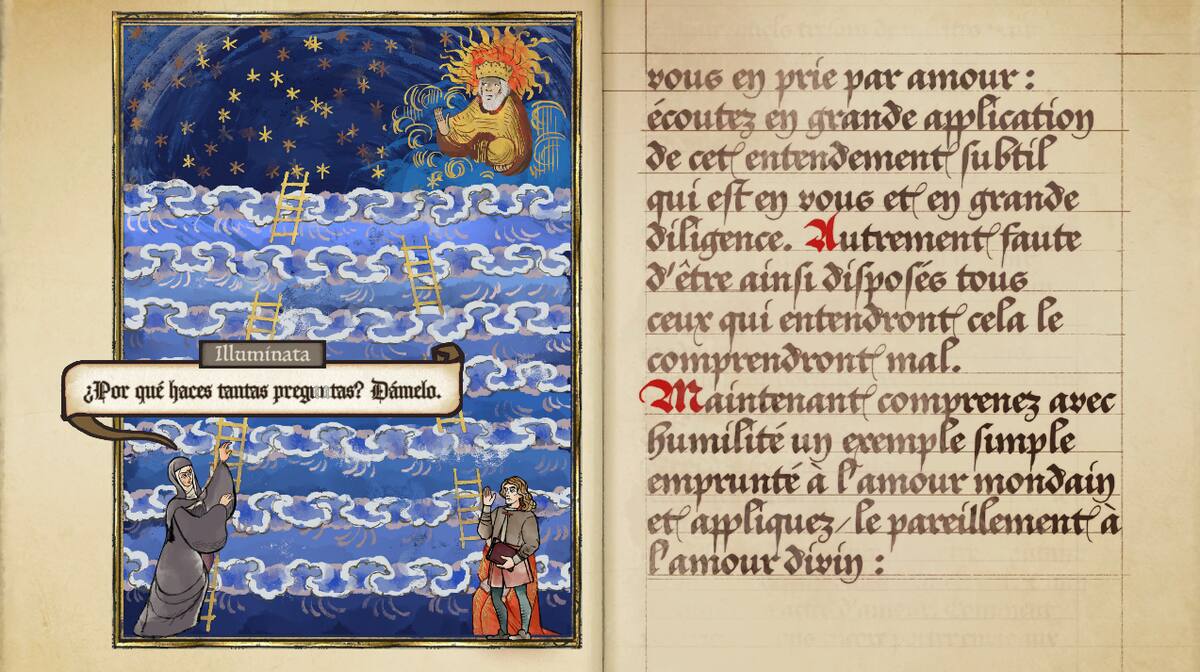 Illuminata
¿Por qué haces tantas preguntas? Dámelo.
vous en prie par amour :
écoutez en grande application
de cet entendement subtil
qui est en vous et en grande
diligence. Autrement faute
d'être ainsi disposés tous
ceux qui entendront cela le
comprendront mal.
Maintenant comprenez avec
humilité un exemple simple
emprunté à l'amour mondain
et appliquez-le pareillement à
l'amour divin :